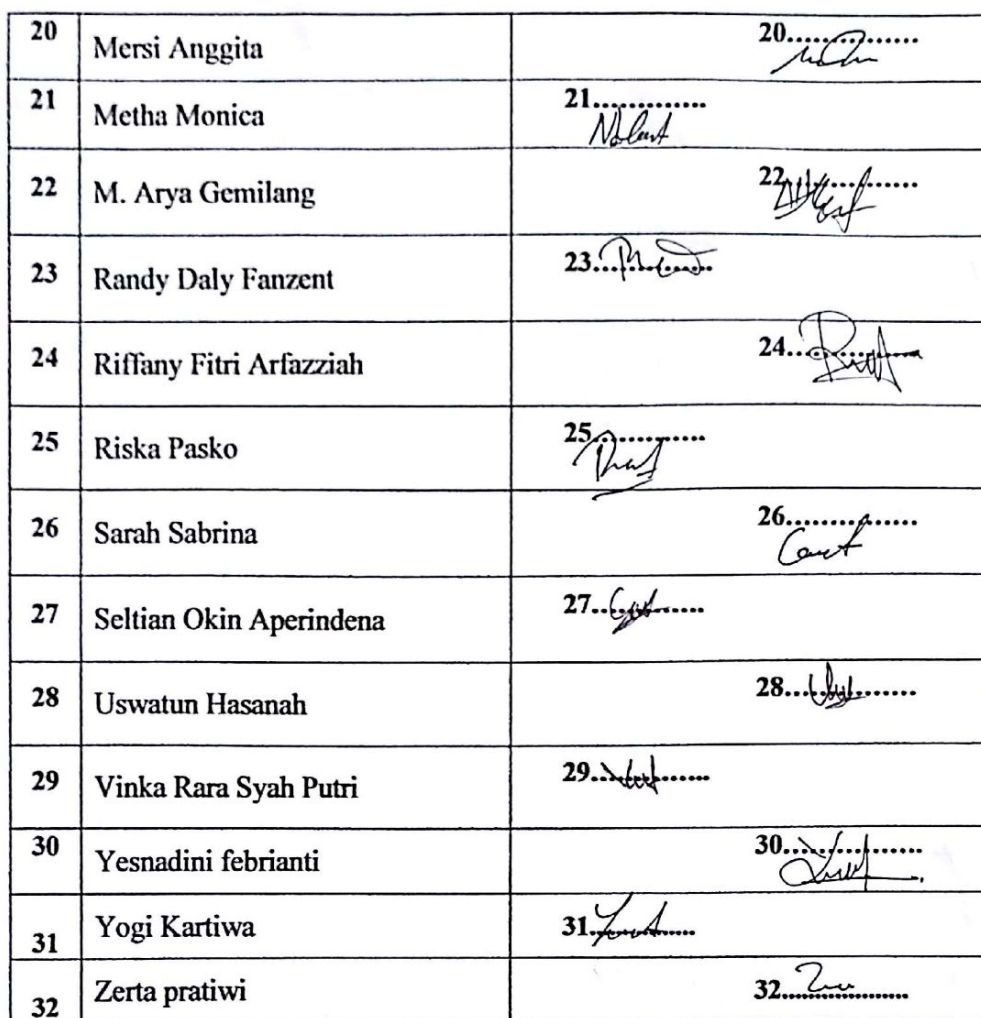 20 Mersi Anggita 20...............
21 Metha Monica 21..............
22 M. Arya Gemilang 22...............
23 Randy Daly Fanzent 23..............
24 Riffany Fitri Arfazziah 24...............
25 Riska Pasko 25..............
26 Sarah Sabrina 26...............
27 Seltian Okin Aperindena 27..............
28 Uswatun Hasanah 28...............
29 Vinka Rara Syah Putri 29..............
30 Yesnadini febrianti 30...............
31 Yogi Kartiwa 31..............
32 Zerta pratiwi 32...............